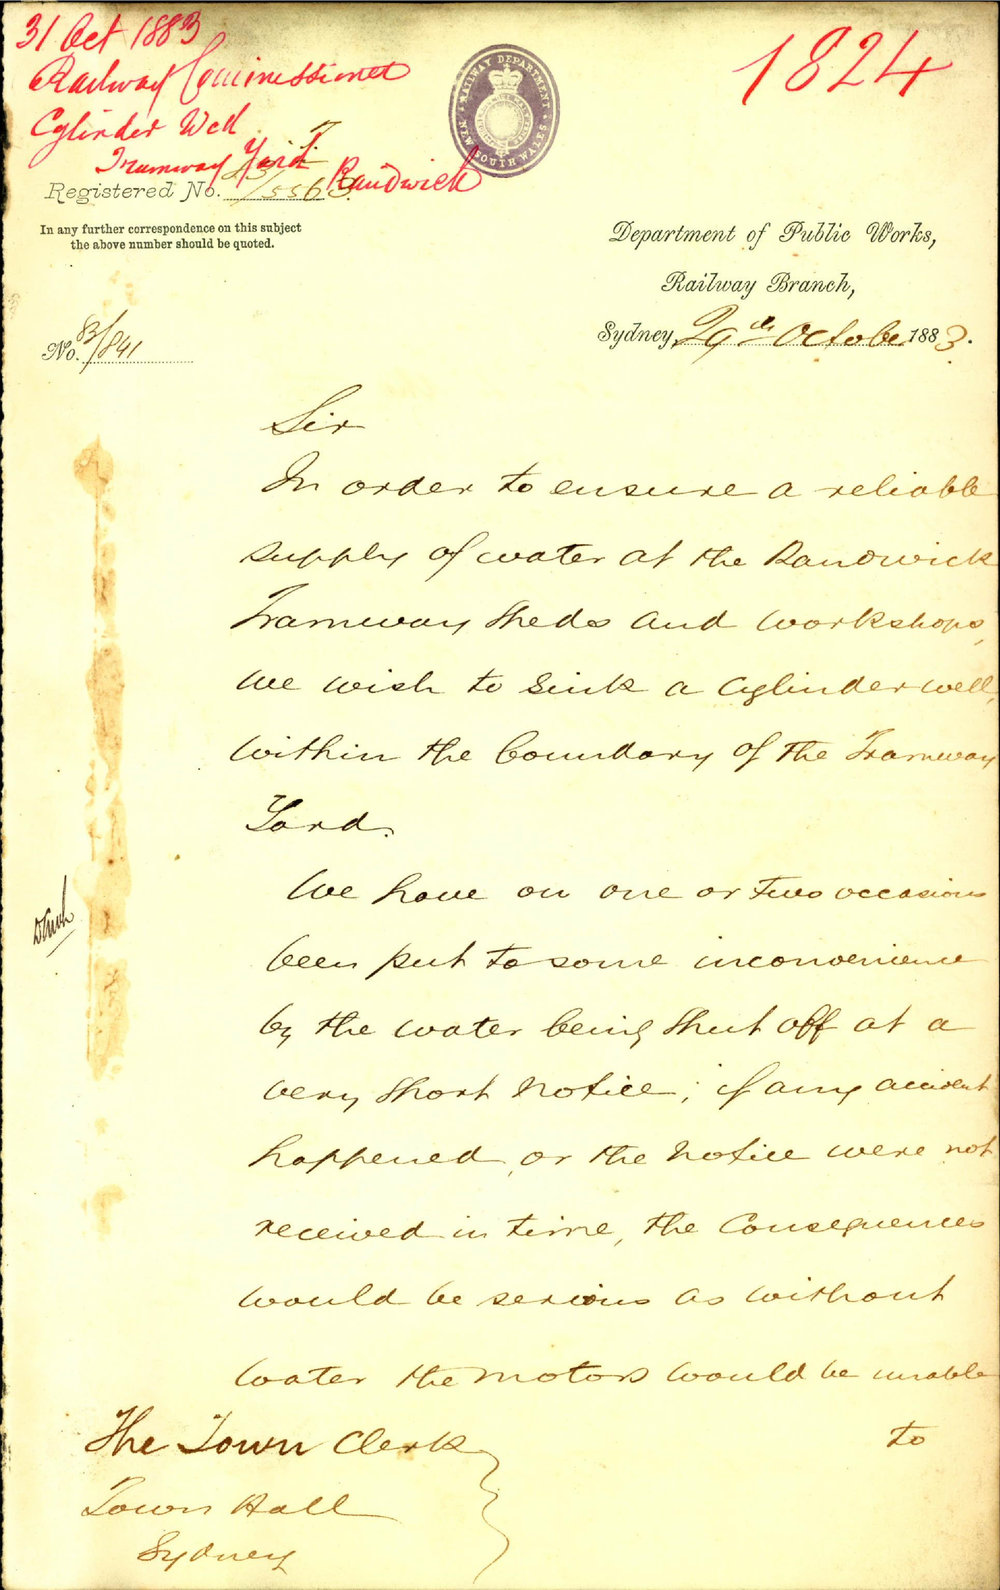 31 Oct 1883
Railway Commissioner
Cylinder Well
Tramway Yard
Randwick
1824
RAILWAY DEPARTMENT
NEW SOUTH WALES
Registered No. 83/5563
In any further correspondence on this subject
the above number should be quoted.
Department of Public Works,
Railway Branch,
Sydney, 29th October 1883.
No. 83/841
Sir
In order to ensure a reliable
supply of water at the Randwick
Tramway Sheds and workshops,
we wish to sink a Cylinder well,
within the boundary of the Tramway
Yard.
We have on one or two occasions
been put to some inconvenience
by the water being shut off at a
very short notice; if any accident
happened, or the notice were not
received in time, the consequences
would be serious as without
water the motors would be unable
to
The Town Clerk
Town Hall
Sydney